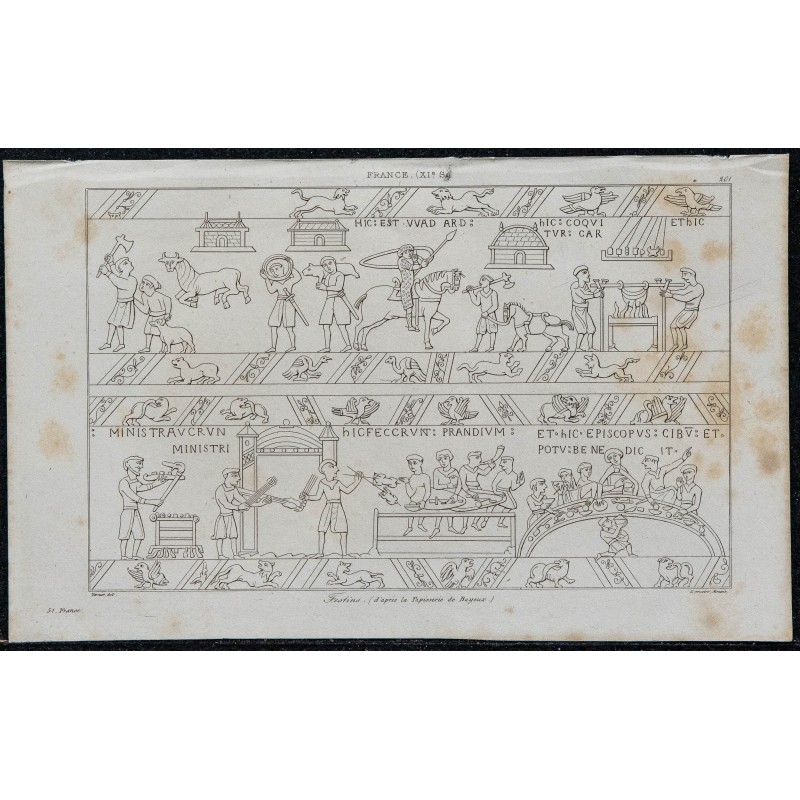 FRANCE. (XIe S.)
201
HIC: EST: VVAD ARD:
hIC: COQUI
TVR: CAR
ET hIC
: MINISTRAVCRVN
MINISTRI
hICFECCRVNT: PRANDIUM:
ET• hIC• EPISCOPVS: CIBV̄: ET•
POTV: BE NE DIC IT•
Festins. (d'après la Tapisserie de Bayeux.)
51. France